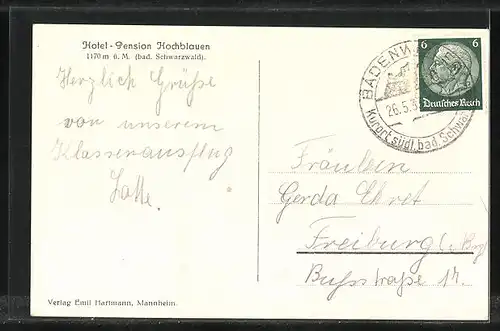 Hotel - Pension Hochblauen
1170 m ü. M. (bad. Schwarzwald).
Herzlich Grüße
von unserem
Klassenausflug
6
6
Deutsches Reich
BADENW
26.5.3
Kurort südl. bad. Schwa
Fräulein
Gerda Ehret
Freiburg
Verlag Emil Hartmann, Mannheim.